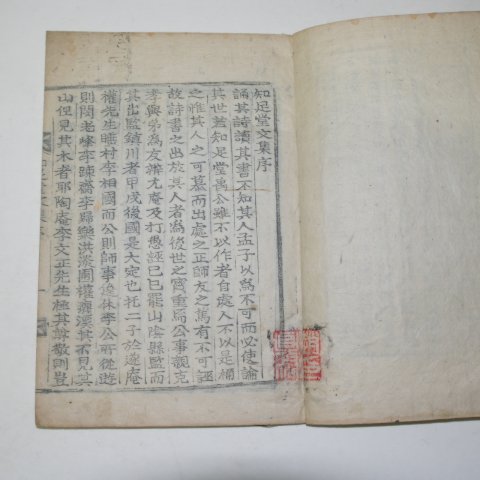 知足堂文集序
誦其詩讀其書不知其人孟子以爲不可而必使論
其世蓋知足堂萬公雖不以作者自處人不以是稱
之惟其人之可慕而出處之正師友之篤有不可誣
故詩書之出於其人者爲後世之寶重焉公事親克
孝與弟爲友辨尤庵及打愚誣己巳罷山陰縣監而
其出監鎭川者甲戌後國是大定也托二子於遂庵
權先生睡村李相國而公則師事後休李公所從遊
則閔老峰李疎齋李歸樂洪
其不見其
山俚見其木者耶陶庵李文正先生極其尊敬則豈